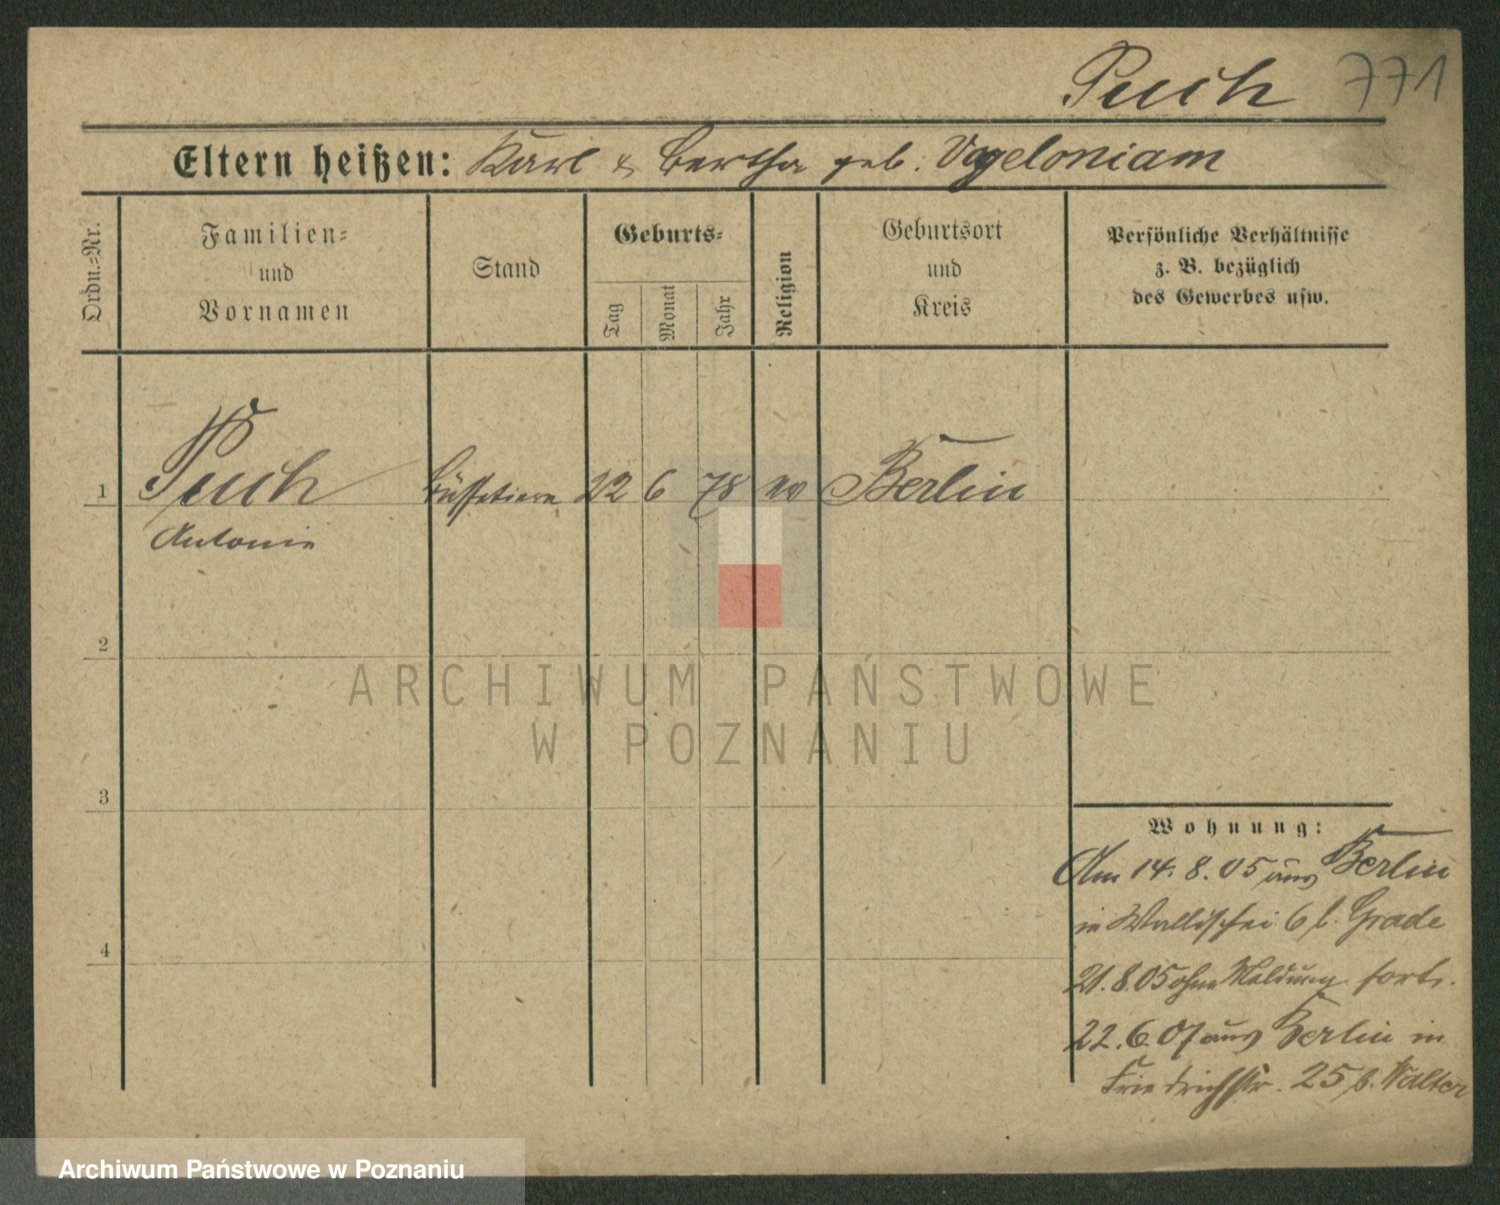 Puch 771
Eltern heißen: Karl & Bertha geb. Vogeloniam
Ordn.-Nr.
Familien-
und
Vornamen
Stand
Geburts-
Tag
Monat
Jahr
Religion
Geburtsort
und
Kreis
Persönliche Verhältnisse
z. B. bezüglich
des Gewerbes usw.
1 Puch Büffetiere 22 6 78 ev Berlin
Antonie
2
3
4
ARCHIWUM PAŃSTWOWE
W POZNANIU
Wohnung:
Am 14.8.05 aus Berlin
in Wallischei 6 b. Grade
21.8.05 ohne Meldung forts.
22.6.07 aus Berlin in
Friedrichstr. 25 b. Walter
Archiwum Państwowe w Poznaniu